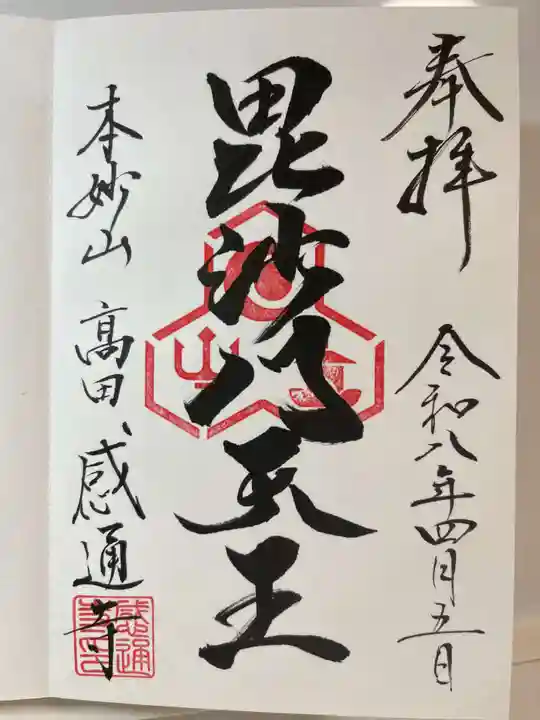 奉拝
令和八年四月五日
毘沙門天王
本妙山
高田、感通寺
感通寺印